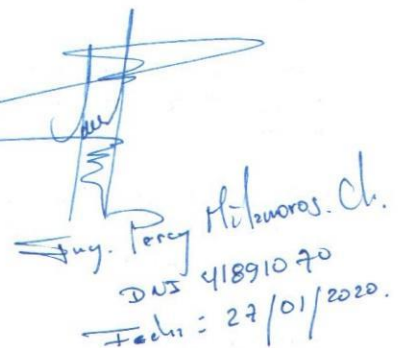 Ing. Percy Milznoros. Ch.
DNI 41891070
Fecha: 27/01/2020.